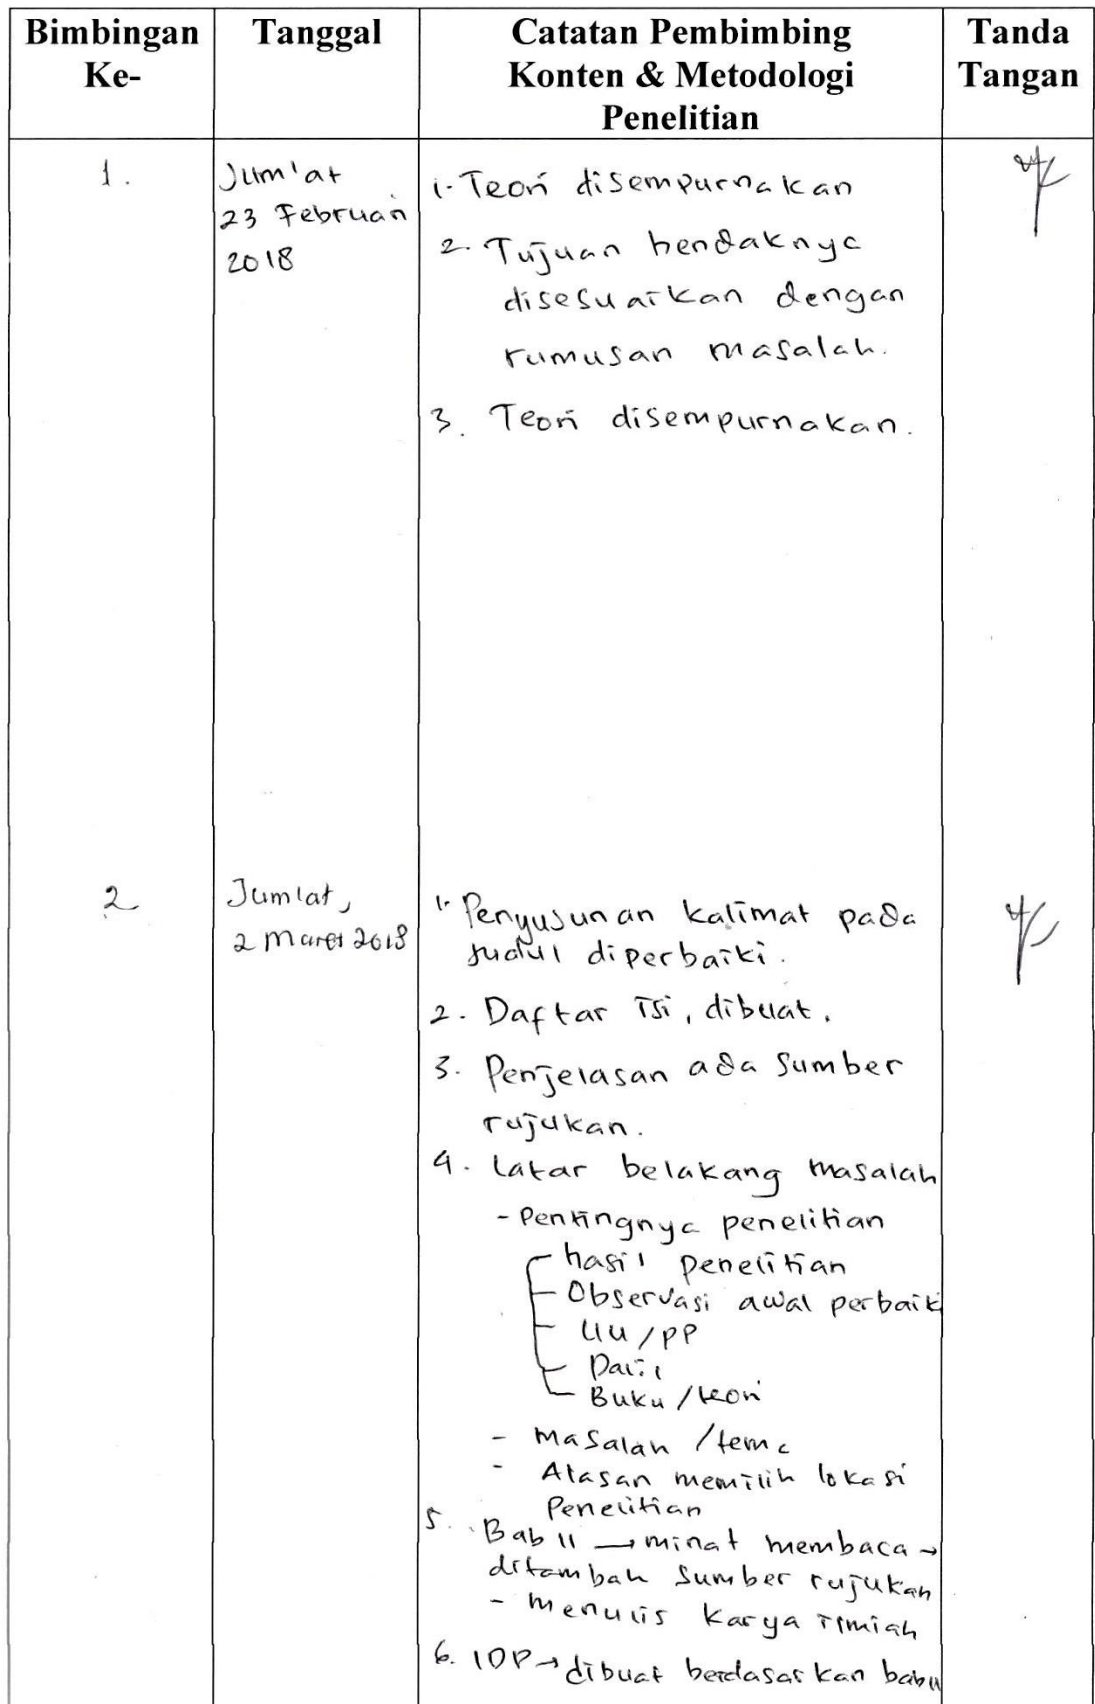 Bimbingan Ke-
Tanggal
Catatan Pembimbing
Konten & Metodologi
Penelitian
Tanda Tangan
1.
Jum'at
23 Februari
2018
1. Teori disempurnakan
2. Tujuan hendaknya
disesuaikan dengan
rumusan masalah.
3. Teori disempurnakan.
2
Jum'at,
2 Maret 2018
1. Penyusunan kalimat pada
judul diperbaiki.
2. Daftar isi, dibuat.
3. Penjelasan ada sumber
rujukan.
4. Latar belakang masalah
- Pentingnya penelitian
hasil penelitian
Observasi awal perbaiki
UU/PP
Dalil
Buku/teori
- Masalah/tema
- Alasan memilih lokasi
Penelitian
5. Bab II → minat membaca →
ditambah sumber rujukan
- menulis karya ilmiah
6. IOP → dibuat berdasarkan bab II